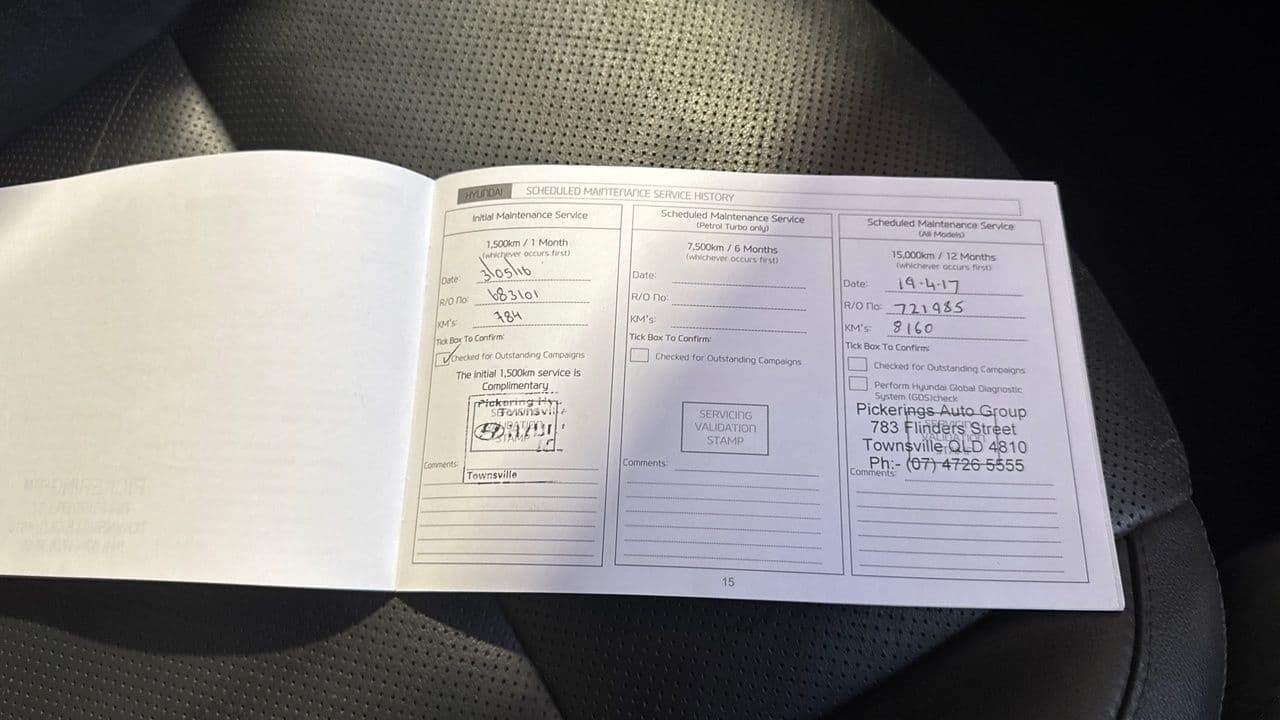 HYUNDAI SCHEDULED MAINTENANCE SERVICE HISTORY
Initial Maintenance Service
1,500km / 1 Month
(whichever occurs first)
Date: 3/05/16
R/O No: 683101
KM's: 784
Tick Box To Confirm:
Checked for Outstanding Campaigns
The initial 1,500km service is
Complimentary
Pickering
Townsville
Comments:
Townsville
Scheduled Maintenance Service
(Petrol Turbo only)
7,500km / 6 Months
(whichever occurs first)
Date:
R/O No:
KM's:
Tick Box To Confirm:
Checked for Outstanding Campaigns
SERVICING
VALIDATION
STAMP
Comments:
Scheduled Maintenance Service
(All Models)
15,000km / 12 Months
(whichever occurs first)
Date: 19-4-17
R/O No: 721985
KM's: 8160
Tick Box To Confirm:
Checked for Outstanding Campaigns
Perform Hyundai Global Diagnostic
System (GDS)check
Pickerings Auto Group
783 Flinders Street
Townsville QLD 4810
Ph:- (07) 4726 5555
Comments:
15